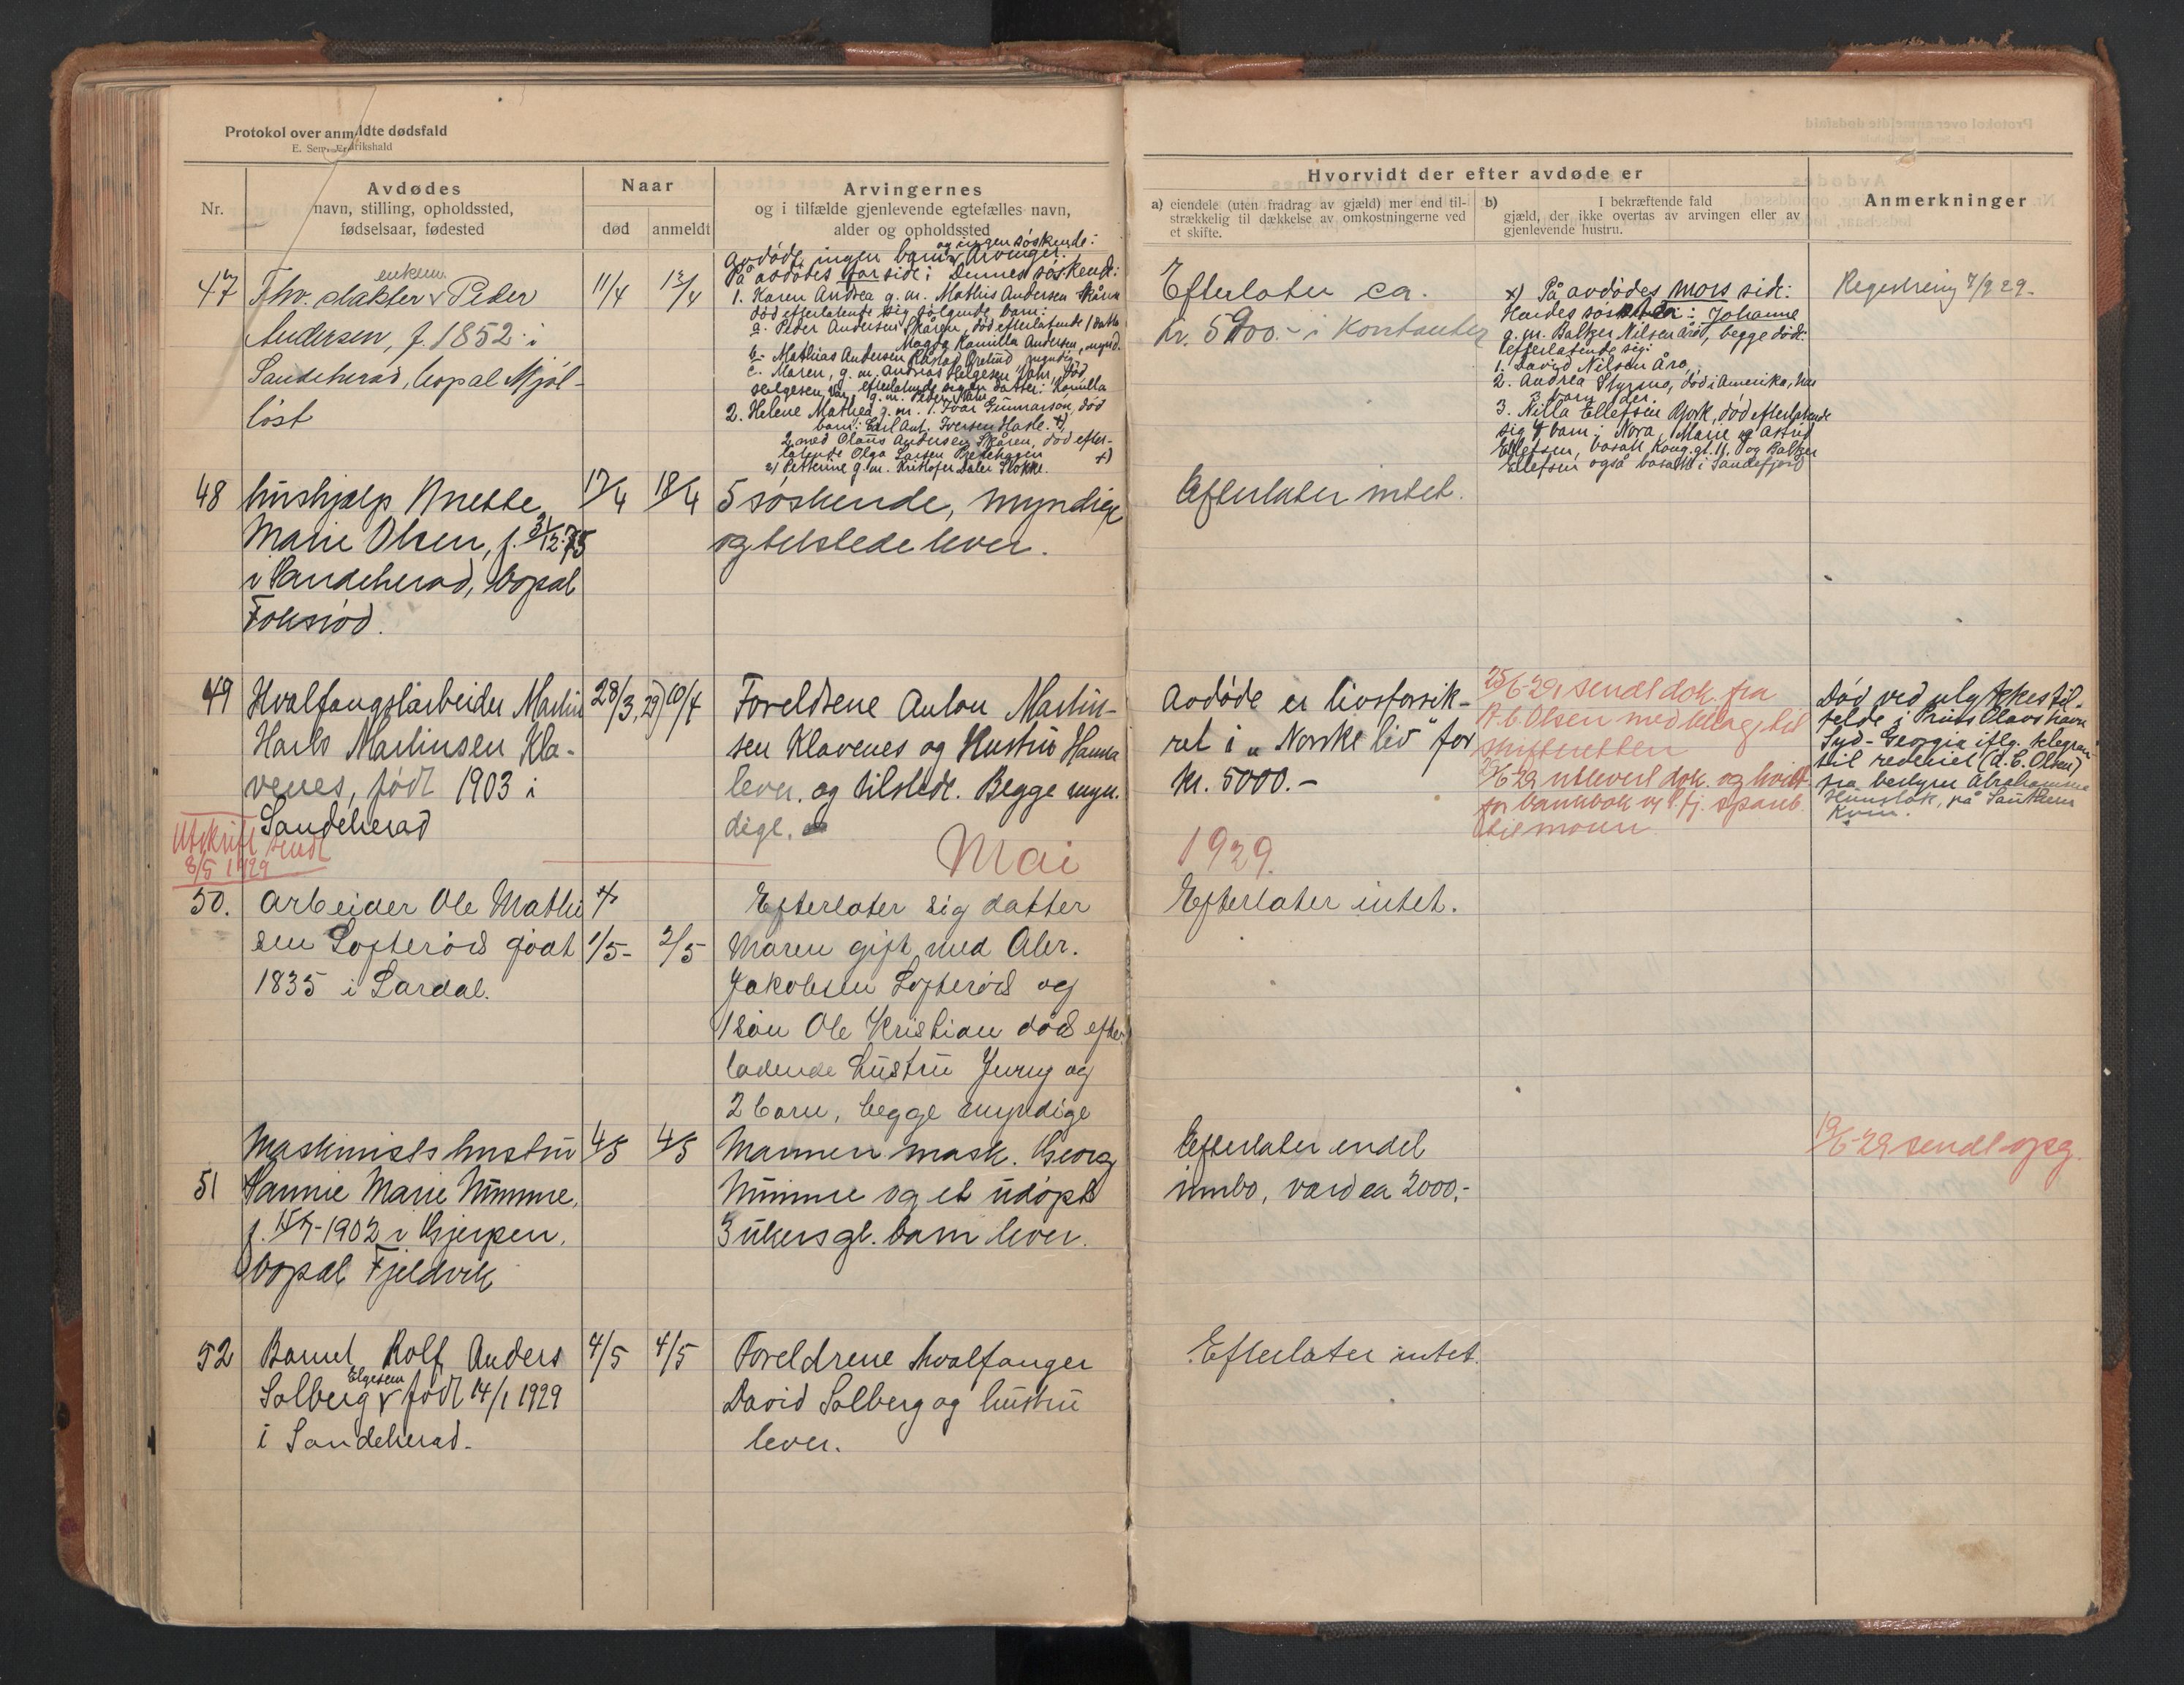 Protokol over anmeldte dødsfald
Nr.
Avdødes
navn, stilling, opholdssted,
fødselsaar, fødested
Naar
død
anmeldt
Arvingernes
og i tilfælde gjenlevende egtefælles navn,
alder og opholdssted
Hvorvidt der efter avdøde er
a) eiendele (uten fradrag av gjæld) mer end til-
strækkelig til dækkelse av omkostningerne ved
et skifte.
b) I bekræftende fald
gjæld, der ikke overtas av arvingen eller av
gjenlevende hustru.
Anmerkninger
47
enkem.
Fhv. slakter Peder
Andersen, f. 1852 i
Sandeherad, bopal Mjøl-
løst
11/4
13/4
og ingen søskende:
Avdøde ingen barn Arvinger:
På avdødes farside: Dennes søskende:
1. Karen Andrea g. m. Mathis Andersen Skåren
død efterlatende sig følgende barn:
a. Peder Andersen Skåren, død efterlatende 1 datter
Magda Kamilla Andersen, mynd.
b. Mathias Andersen Råstad
c. Maren, g. m. Andreas Helgesen Vahr, død
efterlatende sig en datter: Kamilla
2. Helene Mathea g. m. Ivar Gunnarson, død
barn: Carl Ant. Iversen Hasle. x)
2 med Olaus Andersen Skåren, død efter-
latende Olga Larsen
Petherine g. m. Kristofer Dalen Slokke.
Efterlater ca.
kr. 5900.- i kontanter
x) På avdødes mors side:
Hendes søster: Johanne
g. m. Baltzer Nilsen Årø, begge døde
efterlatende sig:
1. David Nilsen Årø,
2. Andrea Styrmo, død i Amerika, har
3 barn der.
3. Nilla Ellefsen Bjork, død efterlatende
sig 4 barn: Nora, Marie og Astrid
Ellefsen, bosatt Kong. gt. 11. og Baltzer
Ellefsen også bosatt i Sandefjord
Registrering 7/9 29-
48
hushjælp Anette
Marie Olsen, f. 31/12-75
i Sandeherad, bopal
Fokserød.
17/4
18/4
5 søskende, myndige
og tilstede lever.
Efterlater intet.
49
Hvalfangstarbeider Martin
Harls Martinsen Kla-
venes, født 1903 i
Sandeherad
28/3, 29
10/4
Foreldrene Anton Martin-
sen Klavenes og Hustru Hanna
lever. og tilstede. Begge myn-
dige.
Avdøde er livsforsik-
ret i "Norske liv" for
kr. 5000.-
25/6-29 sendt dok. fra
A. C. Olsen med bilag til
skifteretten
/6-29 utlevert dok. og kvitt.
for bankbok
til moren
Død ved ulykkestil-
felde i Prins Olavs havn
Syd-Georgia iflg. telegram
til rederiet (A. C. Olsen)
fra bestyrer Abrahamsen
på Southern
Utskrift sendt
8/5 1929
Mai
1929.
50.
Arbeider Ole Mathi
sen Lofterød født
1835 i Lardal.
1/5-
2/5
Efterlater sig datter
Maren gift med Alex.
Jakobsen Lofterød og
1 søn Ole Kristian død efter
ladende hustru Jenny og
2 barn, begge myndige
Efterlater intet.
51
Maskinists hustru
Fannie Marie Numme,
f. 15/7-1902 i Gjerpen,
bopal Fjeldvik
4/5
4/5
Mannen mask. Georg
Numme og et udøpt
3 ukers gl. barn lever.
Efterlater endel
innbo, værd ca 2000,-
19/6-29 sendt opg.
52
Barnet Rolf Anders
Elgesem
Solberg født 14/1 1929
i Sandeherad.
4/5
4/5
Foreldrene hvalfanger
David Solberg og hustru
lever.
Efterlater intet.